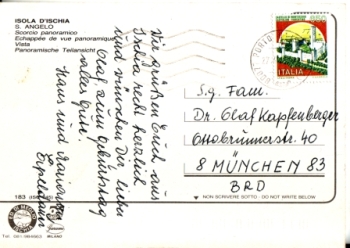 ISOLA D'ISCHIA
S. ANGELO
Scorcio panoramico
Echappée de vue panoramique
Vista
Panoramische Teilansicht
Wir grüßen Euch aus
Ischia recht herzlich
und wünschen Dir, lieber
Olaf zum Geburtstag
alles Gute!
Hans und
ITALIA
S.g. Fam.
Dr. Olaf Kapfenberger
Ottobrunnerstr. 40
8 MÜNCHEN 83
BRD
183
NON SCRIVERE SOTTO - DO NOT WRITE BELOW
MILANO